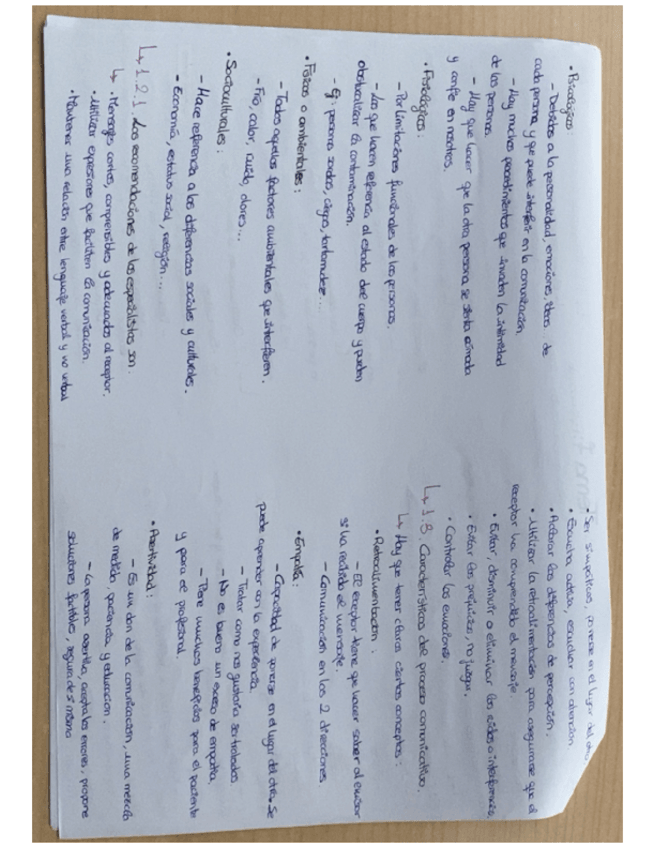 • Psicológicos:
– Debidos a la personalidad, emociones, ideas de
cada persona, y que puede interferir en la comunicación.
– Hay muchos procedimientos que invaden la intimidad
de las personas.
– Hay que hacer que la otra persona se sienta cómoda
y confíe en nosotros.
• Fisiológicos:
– Por limitaciones funcionales de las personas.
– Los que hacen referencia al estado del cuerpo y pueden
obstaculizar la contaminación.
– Ej: personas sordas, ciegas, tartamudez...
• Físicos o ambientales:
– Todos aquellos factores ambientales que interfieren.
– Frío, calor, ruido, olores...
• Socioculturales:
– Hace referencia a las diferencias sociales y culturales.
– Economía, estatus social, religión...
↳ 1.2.1. Las recomendaciones de los especialistas son.
↳ • Mensajes cortos, comprensibles y adecuados al receptor.
• Utilizar expresiones que faciliten la comunicación.
• Mantener una relación entre lenguaje verbal y no verbal
• Ser simpáticos, ponerse en el lugar del otro
• Escucha activa, escuchar con atención
• Aclarar las diferencias de percepción.
• Utilizar la retroalimentación para asegurarse que el
receptor ha comprendido el mensaje
• Evitar, disminuir o eliminar los ruidos o interferencias,
• Evitar los prejuicios, no juzgar.
• Controlar las emociones.
↳ 1.3 Características del proceso comunicativo.
↳ Hay que tener claros ciertos conceptos:
• Retroalimentación.
– El receptor tiene que hacer saber al emisor
si ha recibido el mensaje.
– Comunicación en las 2 direcciones.
• Empatía:
– Capacidad de ponerse en el lugar del otro. Se
puede aprender con la experiencia.
– Tratar como nos gustaría ser tratados
– No es bueno un exceso de empatía.
– Tiene muchos beneficios para el paciente
y para el profesional.
• Asertividad:
– Es un don de la comunicación, una mezcla
de medida, paciencia y educación.
– La persona asertiva, acepta los errores, propone
soluciones factibles, segura de sí misma